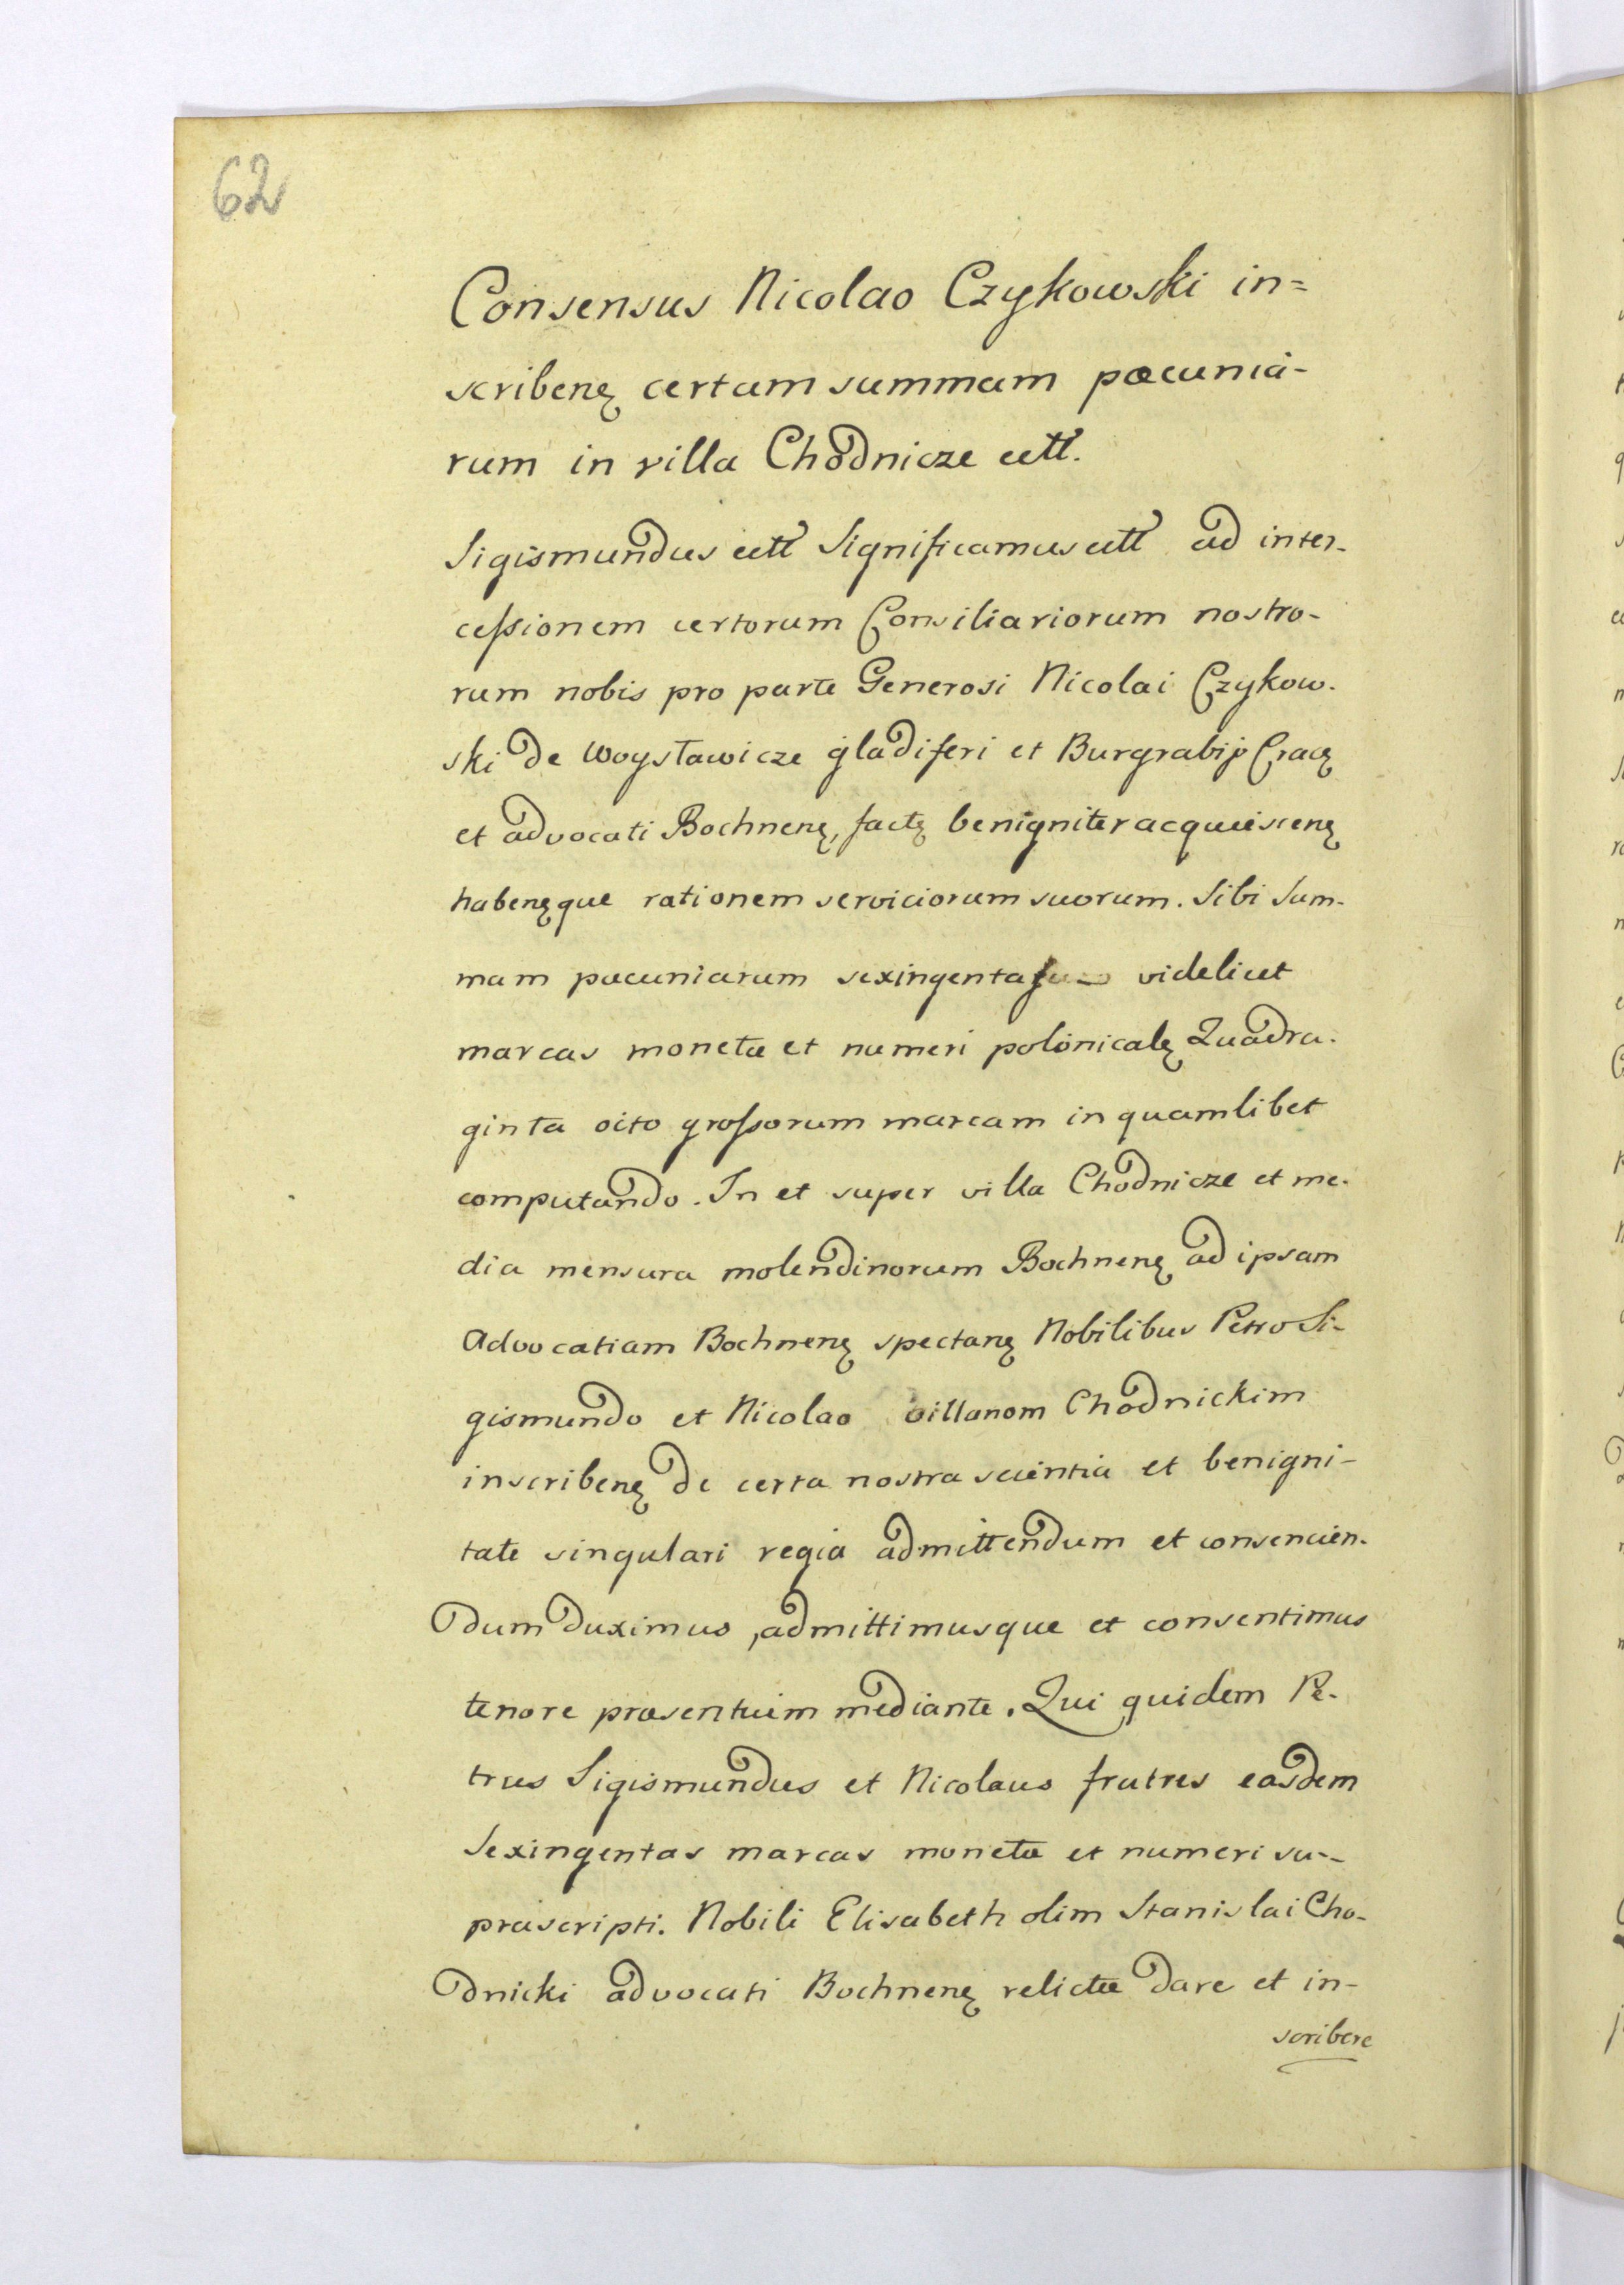 62
Consensus Nicolao Czykowski in=
scribenę certam summam pæcunia-
rum in villa Chodnicze cett.
Sigismundus cett Significamus cett ad inter-
cessionem certorum Consiliariorum nostro-
rum nobis pro parte Generosi Nicolai Czykow-
ski de Woysławicze gladiferi et Burgrabij Cracę
et advocati Bochnenę, factę benigniter acquiescenę
habenęque rationem serviciorum suorum. Sibi Sum-
mam pæcuniarum sexingenta videlicet
marcas monetæ et numeri polonicalę Quadra-
ginta octo grossorum marcam in quamlibet
computando. In et super villa Chodnicze et me-
dia mensura molendinorum Bochnenę ad ipsam
Advocatiam Bochnenę spectanę Nobilibus Petro Si-
gismundo et Nicolao villanom Chodnickim
inscribenę de certa nostra scientia et benigni-
tate singulari regia admittendum et consencien-
dum duximus, admittimusque et consentimus
tenore præsentium mediante. Qui quidem Pe-
trus Sigismundus et Nicolaus fratres easdem
Sexingentas marcas monetæ et numeri su--
præscripti. Nobili Elisabeth olim Stanislai Cho-
dnicki advocati Bochnenę relictæ dare et in-
scribere